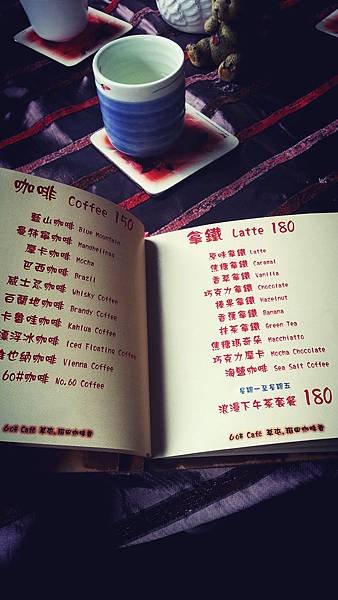 咖啡 Coffee 150
藍山咖啡 Blue Mountain
曼特寧咖啡 Mandheling
摩卡咖啡 Mocha
巴西咖啡 Brazil
威士忌咖啡 Whisky Coffee
白蘭地咖啡 Brandy Coffee
卡魯哇咖啡 Kahlua Coffee
漂浮冰咖啡 Iced Floating Coffee
維也納咖啡 Vienna Coffee
60#咖啡 No.60 Coffee
60# Café
拿鐵 Latte 180
原味拿鐵 Latte
焦糖拿鐵 Caramel
香草拿鐵 Vanilla
巧克力拿鐵 Chocolate
榛果拿鐵 Hazelnut
香蕉拿鐵 Banana
抹茶拿鐵 Green Tea
焦糖瑪奇朵 Macchiatto
巧克力摩卡 Mocha Chocolate
海鹽咖啡 Sea Salt Coffee
浪漫下午茶套餐 180
60# Café